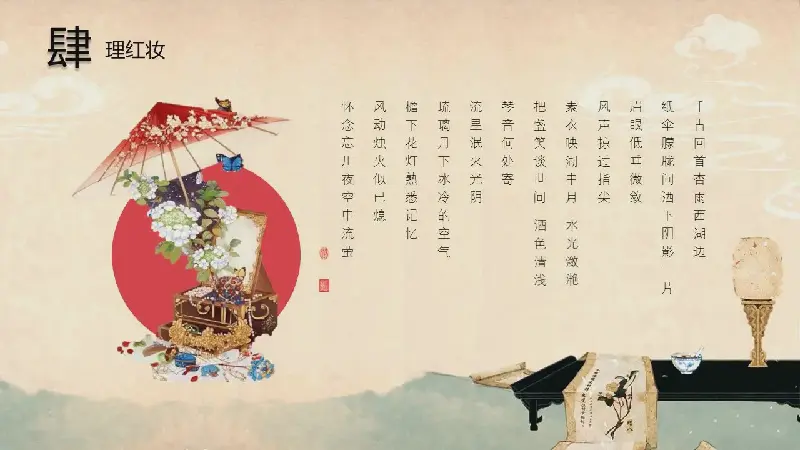 肆
理红妆
千古回首杏雨西湖边
纸伞朦胧间洒下阴影 片
眉眼低垂微敛
风声掠过指尖
素衣映湖中月 水光潋滟
把盏笑谈世间 酒色清浅
琴音何处寄
流里泯灭光阴
琉璃月下冰冷的空气
檐下花灯熟悉记忆
风动烛火似已熄
怀念忘川夜空中流萤